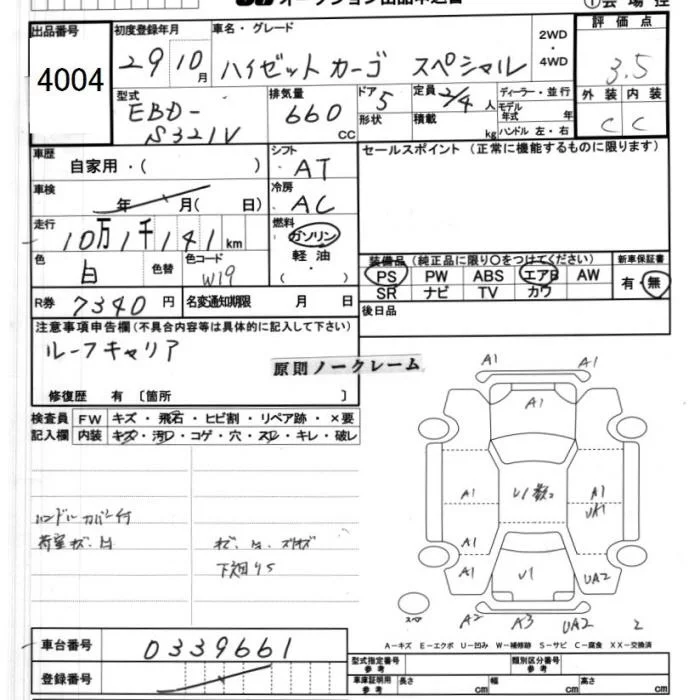 オークション出品申込書
①会場控
出品番号 4004
初度登録年月 29 10月
車名・グレード ハイゼットカーゴ スペシャル
2WD・4WD
評価点 3.5
外装 C 内装 C
型式 EBD-S321V
排気量 660 CC
ドア 5 形状
定員 2/4 人 積載 kg
ディーラー・並行
モデル年式 年
ハンドル 左・右
車歴 自家用・( )
シフト AT
セールスポイント(正常に機能するものに限ります)
車検 年 月( 日)
冷房 AC
走行 10万1千141km
燃料 ガソリン 軽油・( )
色 白 色替
色コード W19
装備品(純正品に限り○をつけてください)
新車保証書
PS PW ABS エアB AW
SR ナビ TV カワ
有・無
R券 7340円
名変通知期限 月 日
後日品
注意事項申告欄(不具合内容等は具体的に記入して下さい)
ルーフキャリア
原則ノークレーム
修復歴 有〔箇所 〕
検査員記入欄
FW キズ・飛石・ヒビ割・リペア跡・×要
内装 キズ・汚れ・コゲ・穴・スレ・キレ・破レ
ハンドルカバー付
荷室キズ、
下廻りS
A1 A1
A1
A1 U1数コ A1
UA1
A1
A1 U1 UA2
スペア
A2 A3 UA2 2
A-キズ E-エクボ U-凹み W-補修跡 S-サビ C-腐食 XX-交換済
車台番号 0339661
登録番号
型式指定番号 参考
類別区分番号 参考
車庫証明用 参考 長さ cm 幅 cm 高さ cm